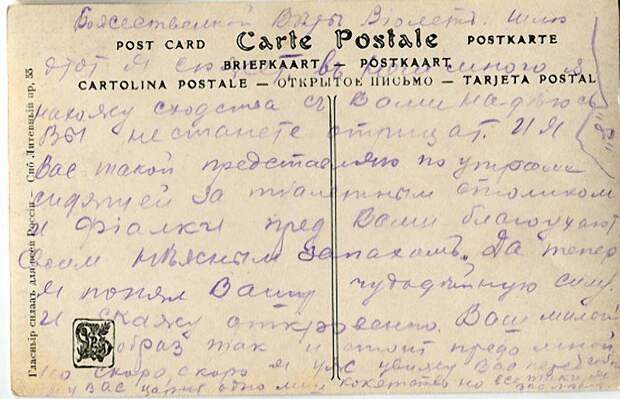 Божественной Виды Віолетъ. Шлю
POST CARD Carte Postale POSTKARTE
этот я сюжетъ въ котомъ много я
BRIEFKAART — POSTKAART
CARTOLINA POSTALE — ОТКРЫТОЕ ПИСЬМО — TARJETA POSTAL
нахожу сходства съ Вами на-дѣюсь
Вы не станете отрицат. И я
Вас такой представляю по утрам
сидящей за туалетным столиком
и фіалки пред Вами благоухают
Своим нѣжным запахомъ. Да тепер
я понял Вашу чудодѣйную силу.
И скажу откровенно. Ваш милой
образ так и стоит предо мной
но скоро скоро я уже увижу Вас перед собой
у Вас царит одно лиш кокетство но все таки я
Главный складъ для всей Россіи — Спб Литейный пр, 55